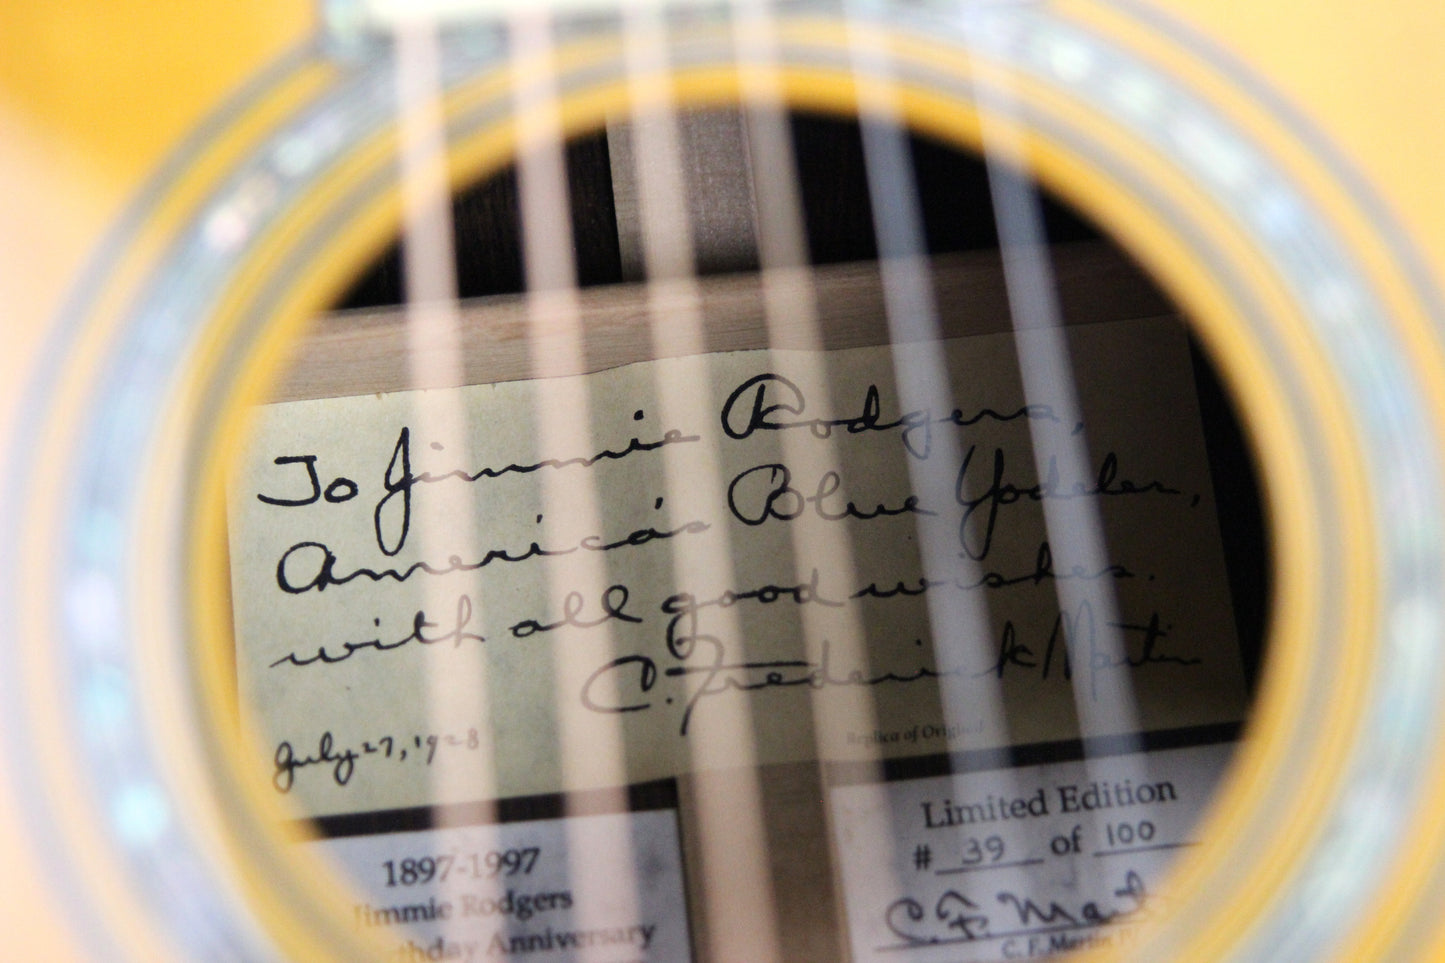 To Jimmie Rodgers,
America's Blue Yodeler,
with all good wishes.
C. Frederick Martin
July 27, 1928
Replica of Original
1897-1997
Jimmie Rodgers
Anniversary
Limited Edition
# 39 of 100
C. F. Martin
C. F. Martin IV